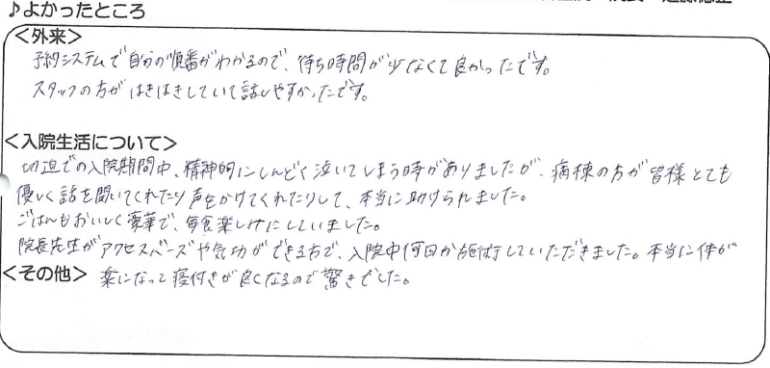 ♪よかったところ
<外来>
予約システムで自分の順番がわかるので、待ち時間が少なくて良かったです。
スタッフの方がはきはきしていて話しやすかったです。
<入院生活について>
切迫での入院期間中、精神的にしんどく泣いてしまう時がありましたが、病棟の方が皆様とても
優しく話を聞いてくれたり声をかけてくれたりして、本当に助けられました。
ごはんもおいしく豪華で、毎食楽しみにしていました。
院長先生がアクセスバーズや気功ができる方で、入院中何回か施術していただきました。本当に体が
<その他> 楽になって寝付きが良くなるので驚きでした。